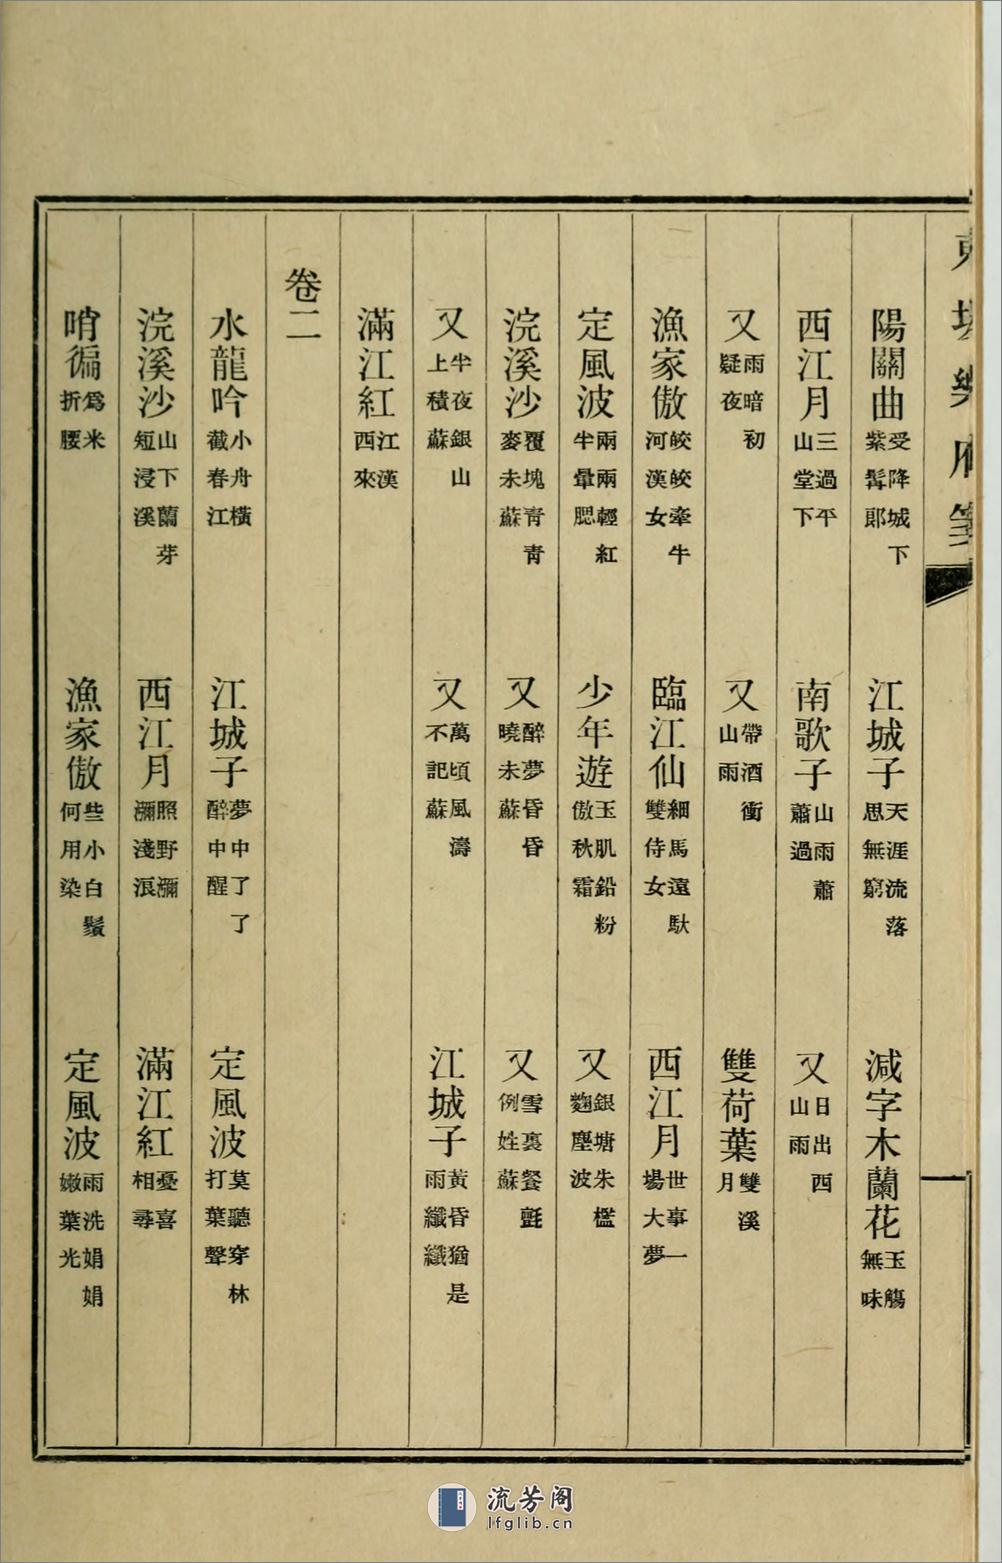 東坡樂府箋
陽關曲 受降城下紫髯郎 江城子 天涯流落思無窮 減字木蘭花 玉觴無味
西江月 三過平山堂下 南歌子 山雨蕭蕭過 又 日出西山雨
又 雨暗初疑夜 又 帶酒衝山雨 雙荷葉 雙溪月
漁家傲 皎皎牽牛河漢女 臨江仙 細馬遠馱雙侍女 西江月 世事一場大夢
定風波 兩兩輕紅半暈腮 少年遊 玉肌鉛粉傲秋霜 又 銀塘朱檻麴塵波
浣溪沙 覆塊青青麥未蘇 又 醉夢昏昏曉未蘇 又 雪裏餐氈例姓蘇
又 半夜銀山上積蘇 又 萬頃風濤不記蘇 江城子 黃昏猶是雨纖纖
滿江紅 江漢西來
卷二
水龍吟 小舟橫截春江 江城子 夢中了了醉中醒 定風波 莫聽穿林打葉聲
浣溪沙 山下蘭芽短浸溪 西江月 照野瀰瀰淺浪 滿江紅 憂喜相尋
哨徧 爲米折腰 漁家傲 些小白鬚何用染 定風波 雨洗娟娟嫩葉光
流芳阁
lfglib.cn